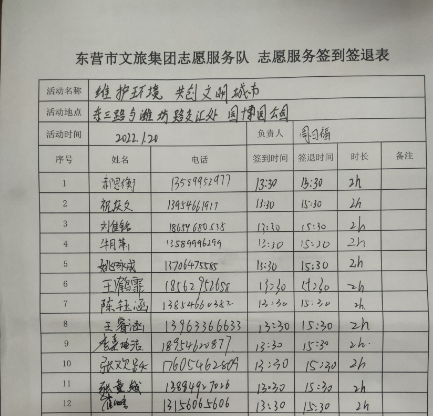 东营市文旅集团志愿服务队 志愿服务签到签退表
活动名称 维护环境 共创文明城市
活动地点 东三路与潍坊路交汇处 园博园公园
活动时间 2022.1.20 负责人
序号 姓名 电话 签到时间 签退时间 时长 备注
1 13:30 15:30 2h
2 祝获文 13954661917 13:30 15:30 2h
3 13:30 15:30 2h
4 13589996299 13:30 15:30 2h
5 13706475585 13:30 15:30 2h
6 王鹤霏 18562752658 13:30 15:30 2h
7 陈钰涵 13:30 15:30 2h
8 王睿涵 13963366633 13:30 15:30 2h
9 18954620877 13:30 15:30 2h
10 17605462809 13:30 15:30 2h
11 13:30 15:30 2h
12 13156065606 13:30 15:30 2h